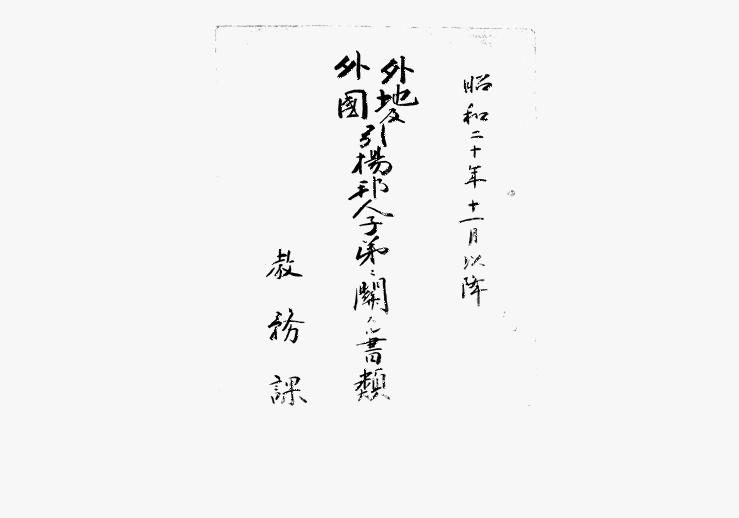 昭和二十年十一月以降
外地及
外國
引揚邦人子弟ニ關スル書類
教務課